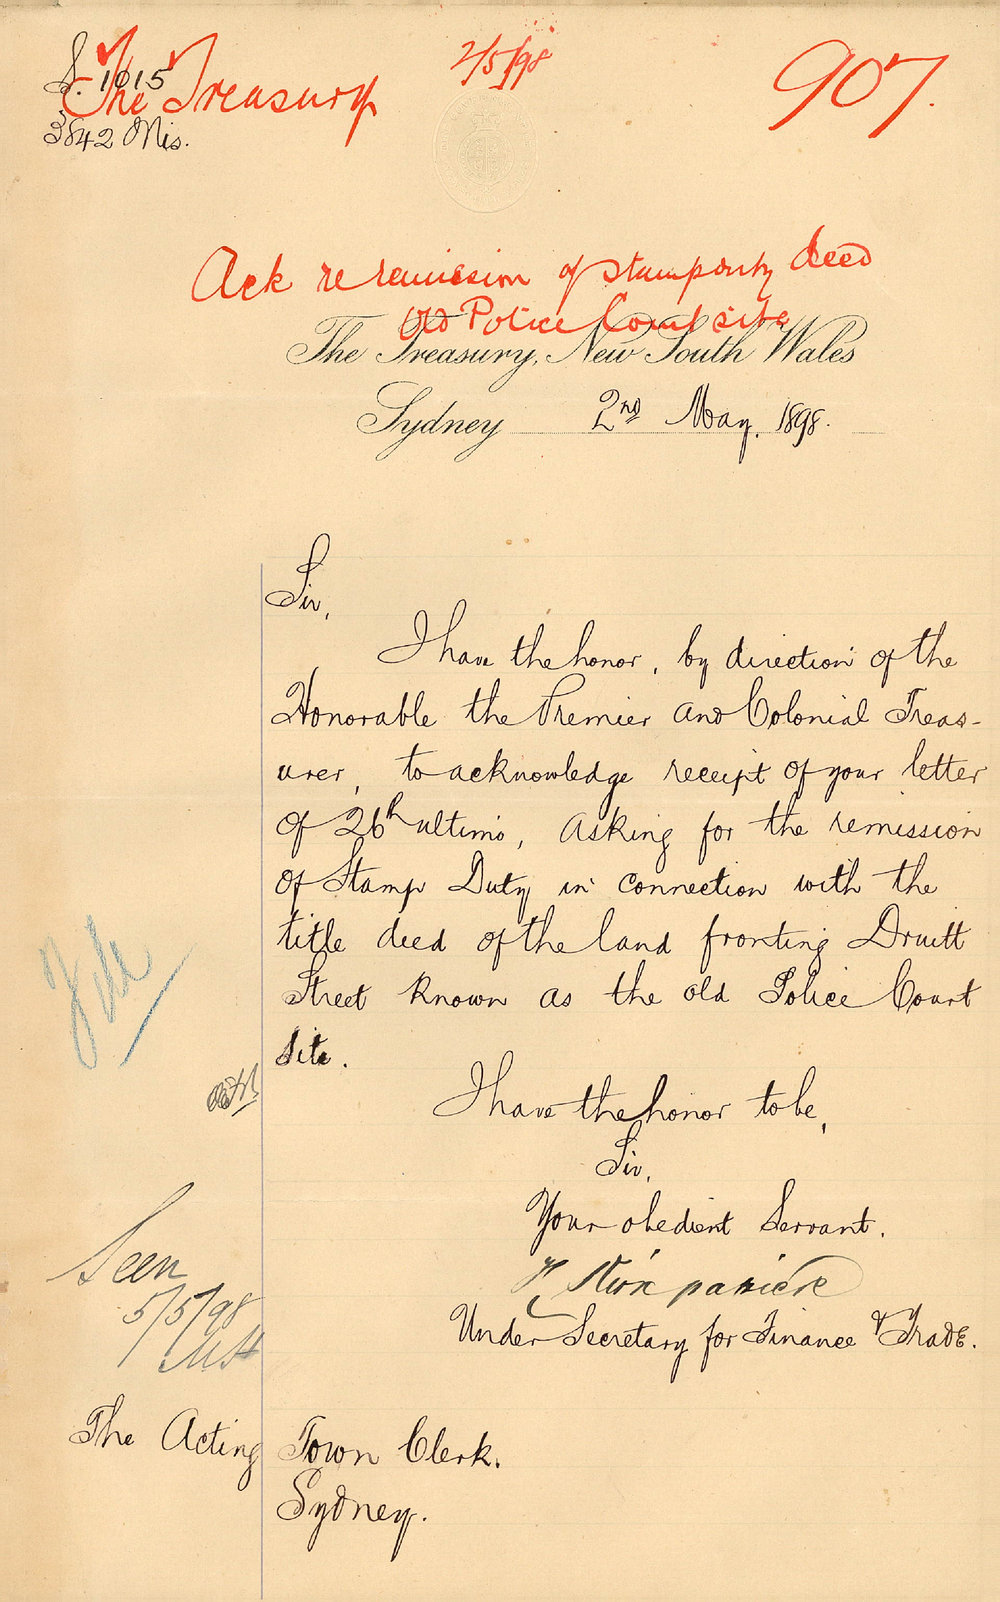 S. 1015
The Treasury
2/5/98
907.
3842 Mis.
Ack re remission of stampduty deed
Old Police Court site
The Treasury, New South Wales
Sydney 2nd May, 1898.
Sir,
I have the honor, by direction of the
Honorable the Premier and Colonial Treas-
urer, to acknowledge receipt of your letter
of 26th ultimo, asking for the remission
of Stamp Duty in connection with the
title deed of the land fronting Druitt
Street known as the old Police Court
site.
File
I have the honor to be,
Sir,
Your obedient Servant.
F Kirkpatrick
Under Secretary for Finance & Trade.
Seen
5/5/98
The Acting Town Clerk.
Sydney.